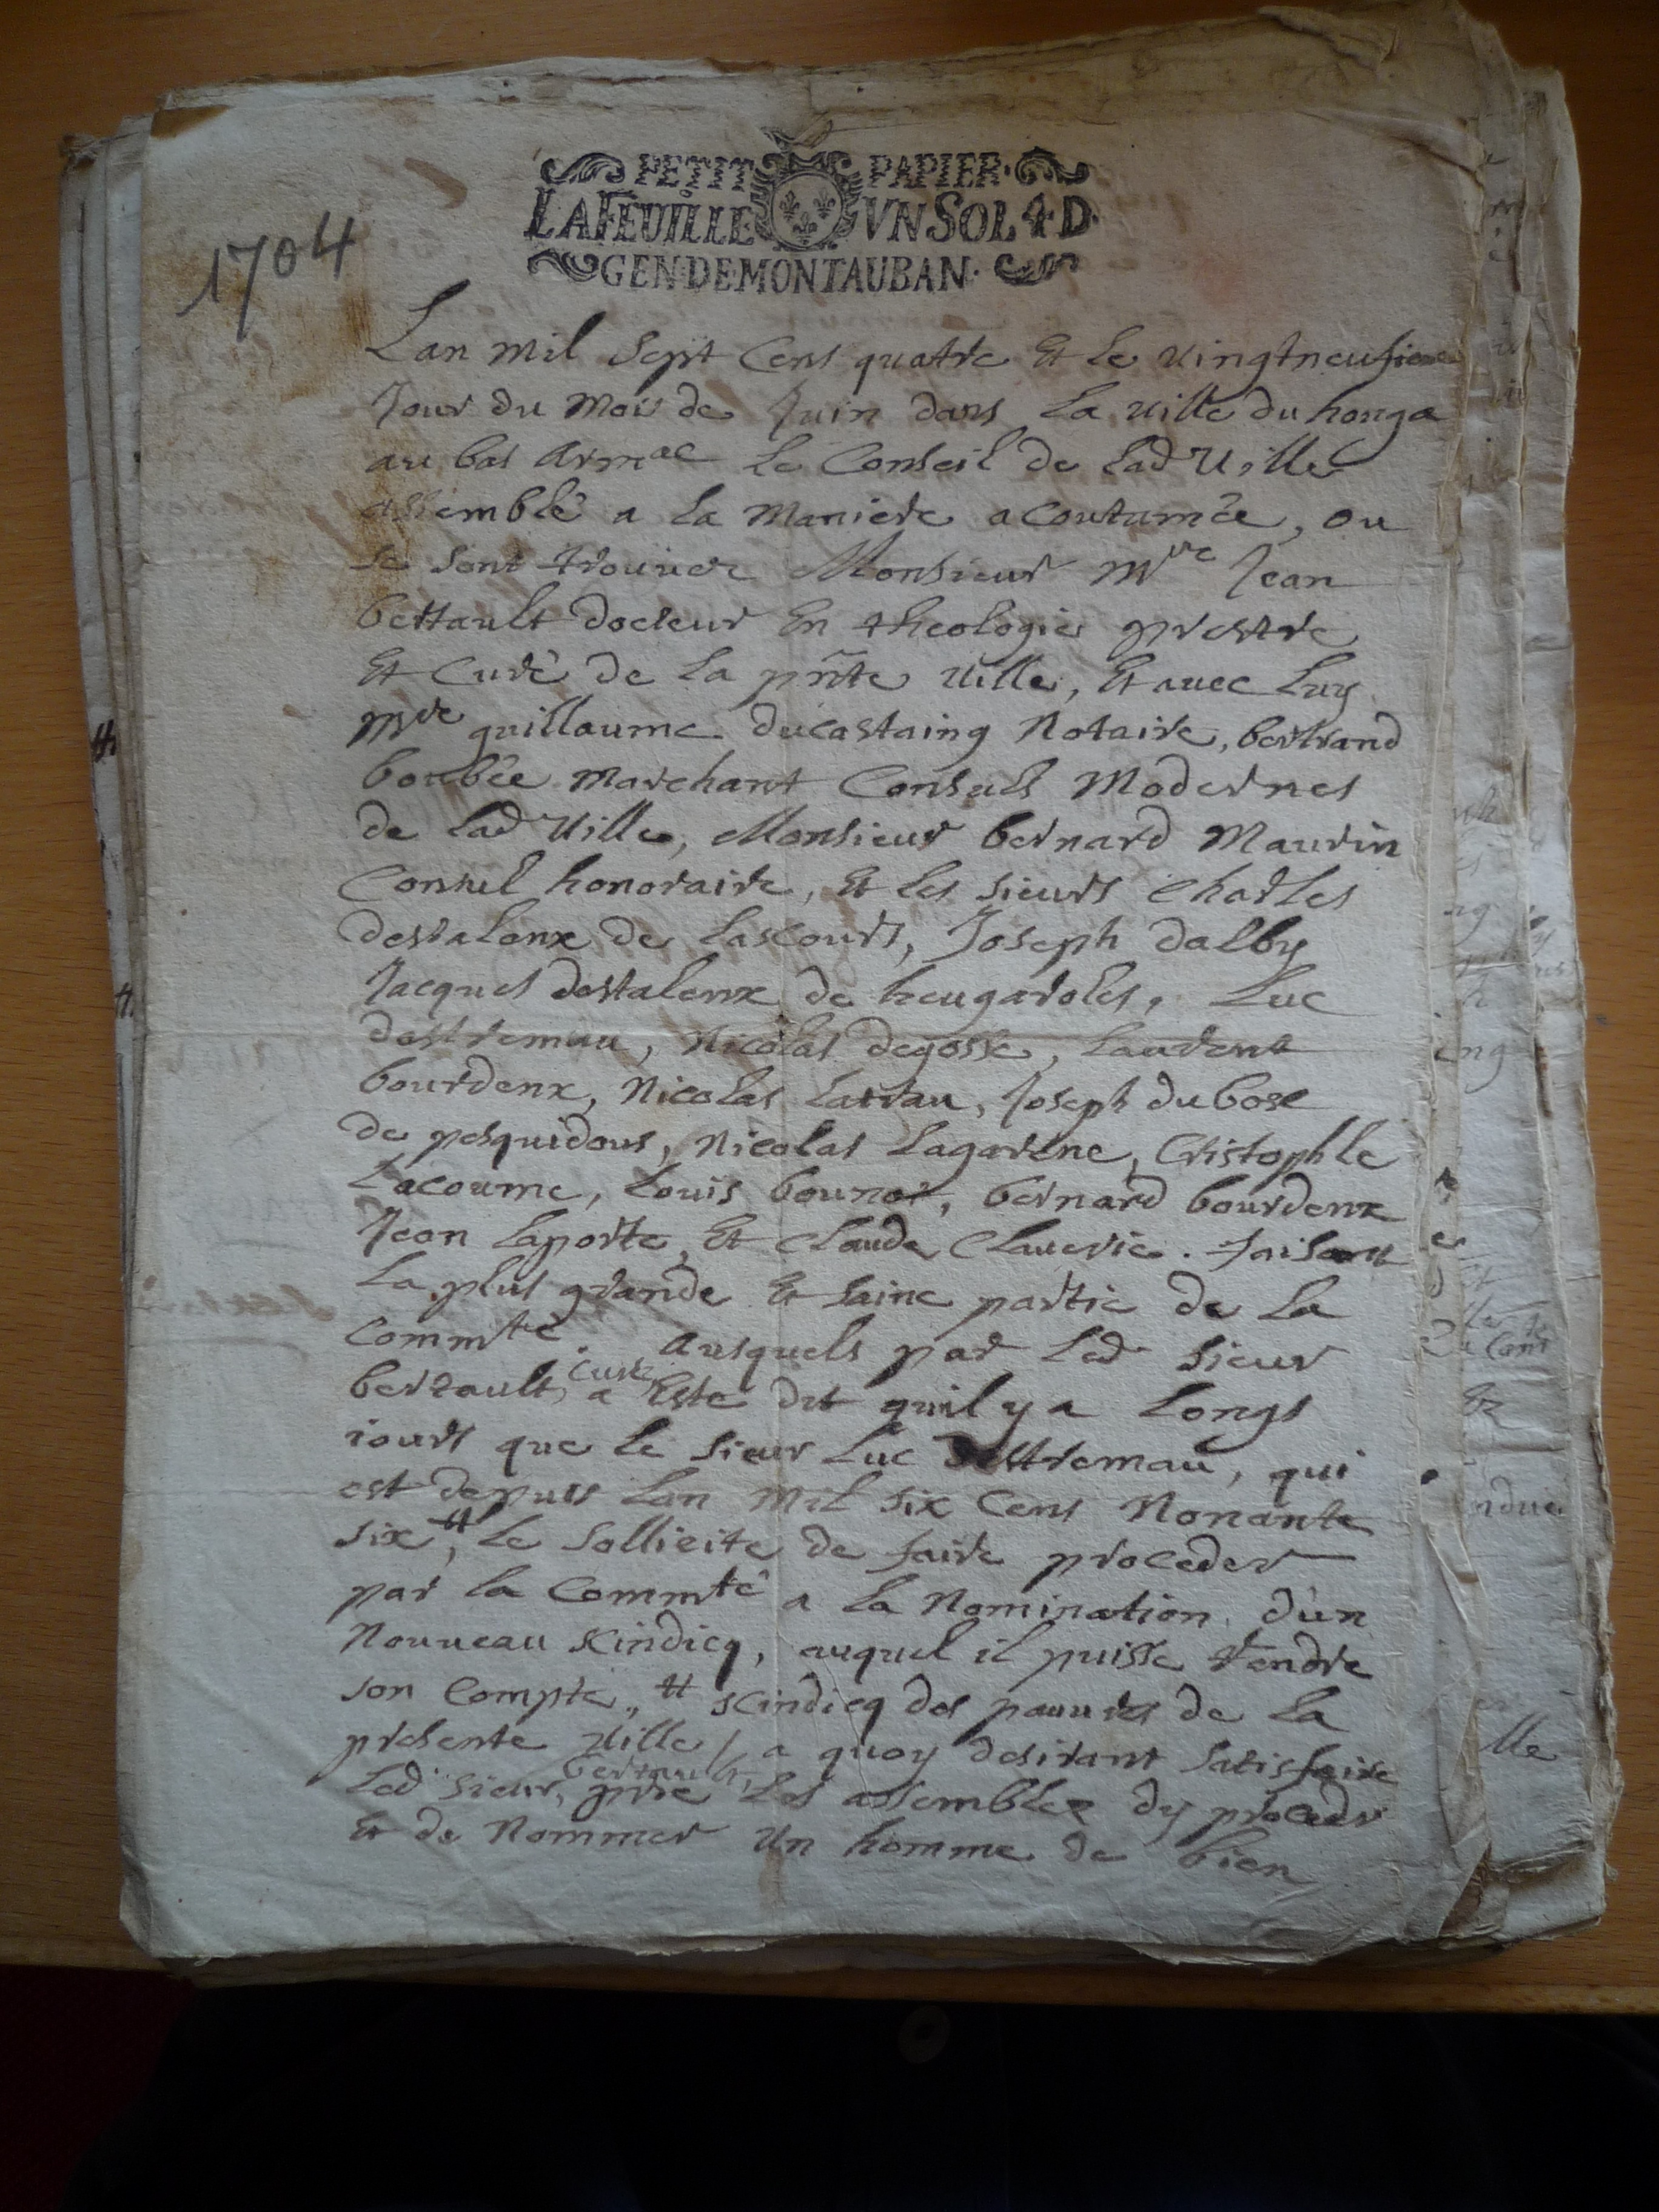 PETIT PAPIER.
LA FEUILLE VN SOL 4 D.
GEN. DE MONTAUBAN.
1704
Lan mil Sept Cens quatre Et Le vingtneufieme
Jour du Mois de Juin dans La ville du houga
au bas Armac Le Conseil de Lad Ville
assemblé a La Maniere acoutumée, ou
se sont trouvez Monsieur Mre Jean
bertault docteur En theologie prestre
Et Curé de La pnte ville, Et avec Luy
Mre guillaume ducastaing Notaire, bertrand
boubée Marchant Consuls Modernes
de Lad Ville, Monsieur bernard Maurin
Consul honoraire, Et Les Sieurs Charles
destalenx de Lascours, Joseph dalby
Jacques destalenx de heugaroles, Luc
destremau, Nicolas degosse, Laurent
bourdenx, Nicolas Larrau, Joseph dubosc
de pesquidous, Nicolas Lagarene, Cristophle
Lacoume, Louis, bernard bourdenx
Jean Laporte, Et Claude Claverie. faisant
La plus grande Et saine partie de La
Commté. Ausquels par Led Sieur
bertault, Curé a Esté dit quil y a Longs
iours que Le Sieur Luc destremau, qui
est depuis Lan Mil Six Cens Nonante
six #, Le Sollicite de faire proceder
par La Commté a La Nomination dun
Nouveau Scindicq, auquel il puisse rendre
son Compte, # Scindicq des pauvres de La
presente Ville / a quoy desirant Satisfaire
Led Sieur bertault, prie Les assemblez dy proceder
Et de Nommer Un homme de bien